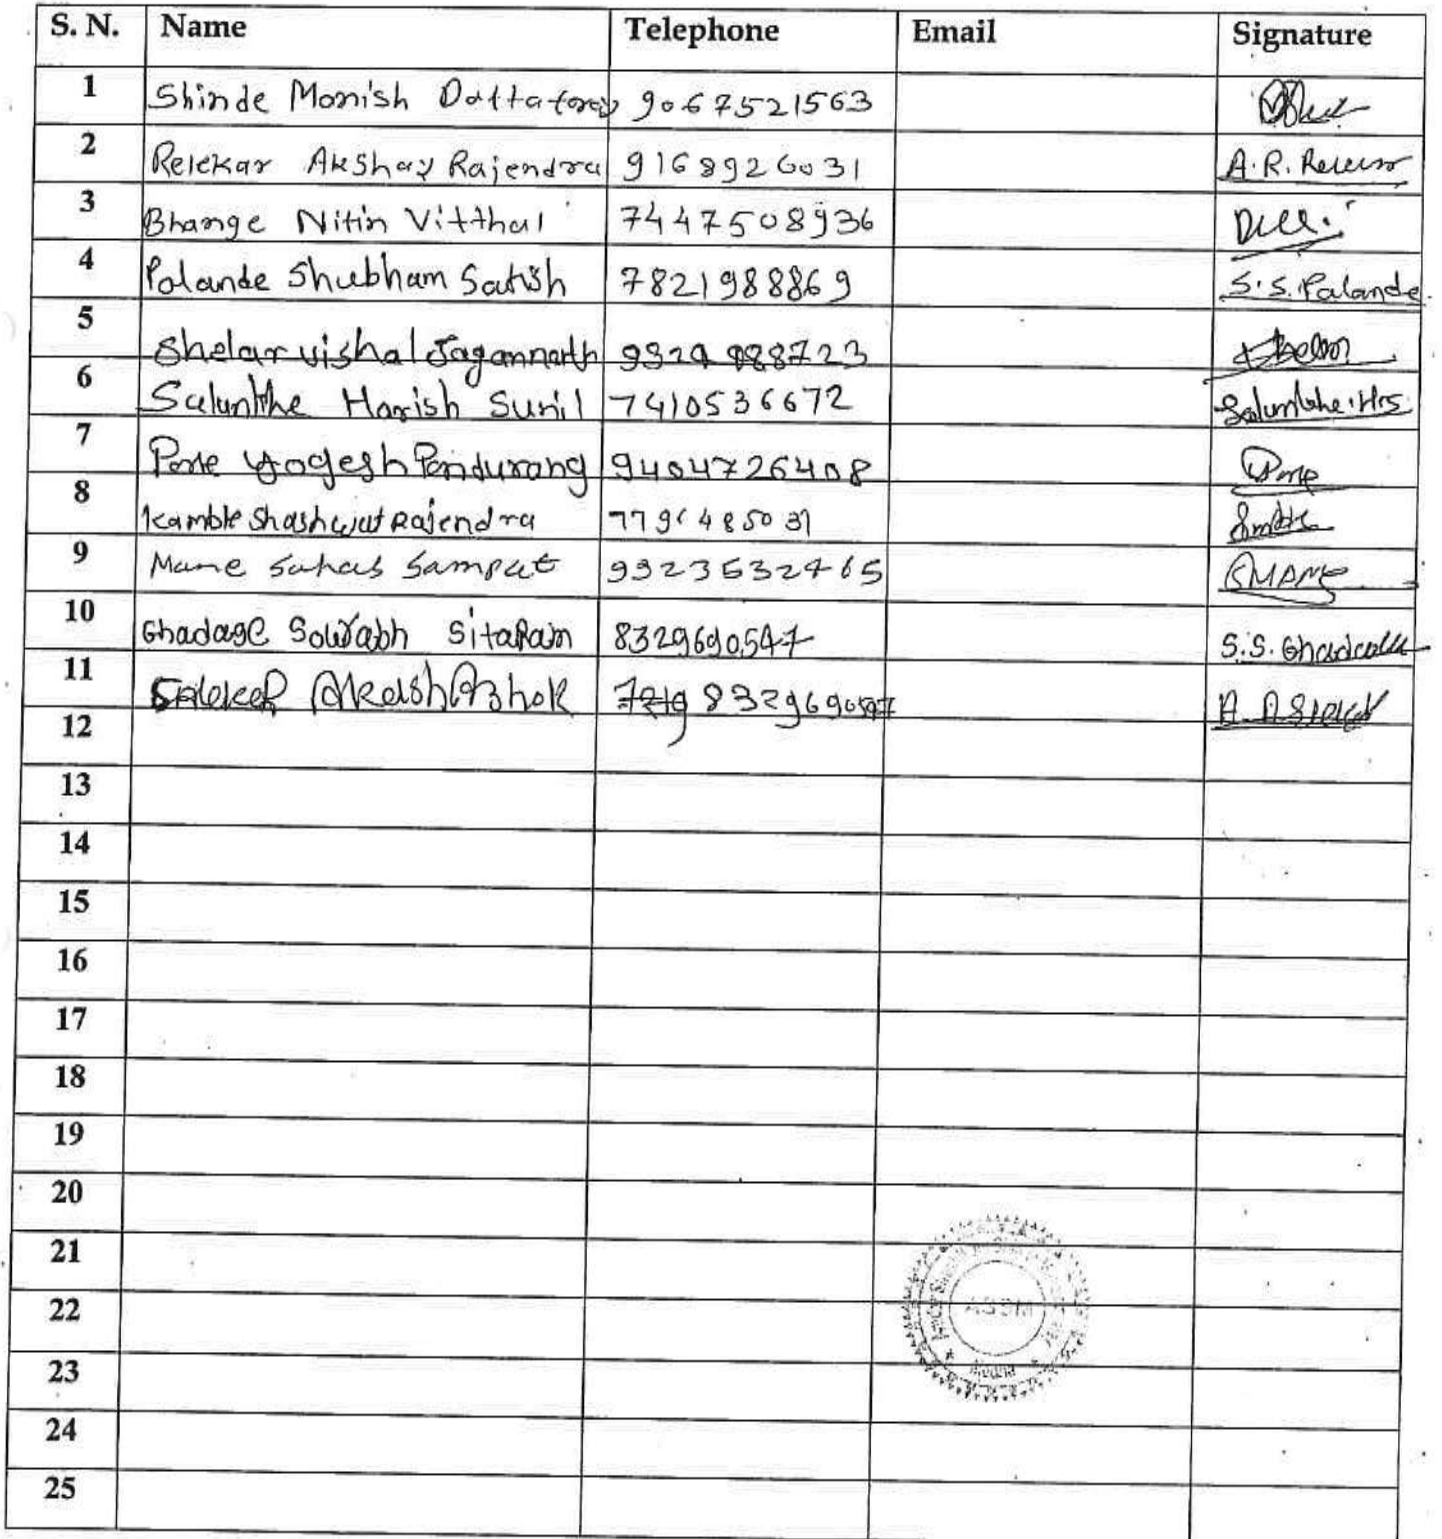 S. N. Name Telephone Email Signature
1 Shinde Monish Dattatray 9067521563
2 Relekar Akshay Rajendra 9168926031 A.R. Relekar
3 Bhange Nitin Vitthal 7447508936
4 Palande Shubham Satish 7821988869 S.S. Palande
5 Shelar vishal Jagannath
6 Salunkhe Harish Sunil 7410536672 Salunkhe.H.S
7 Pone Yogesh Pandurang 9404726408
8 Kamble Shashwat Rajendra
9 Mane Suhas Sampat
10 Ghadage Sourabh Sitaram 8329690547 S.S. Ghadage
11 Akash Ashok 8329690547
12
13
14
15
16
17
18
19
20
21
22 ASSM
23
24
25